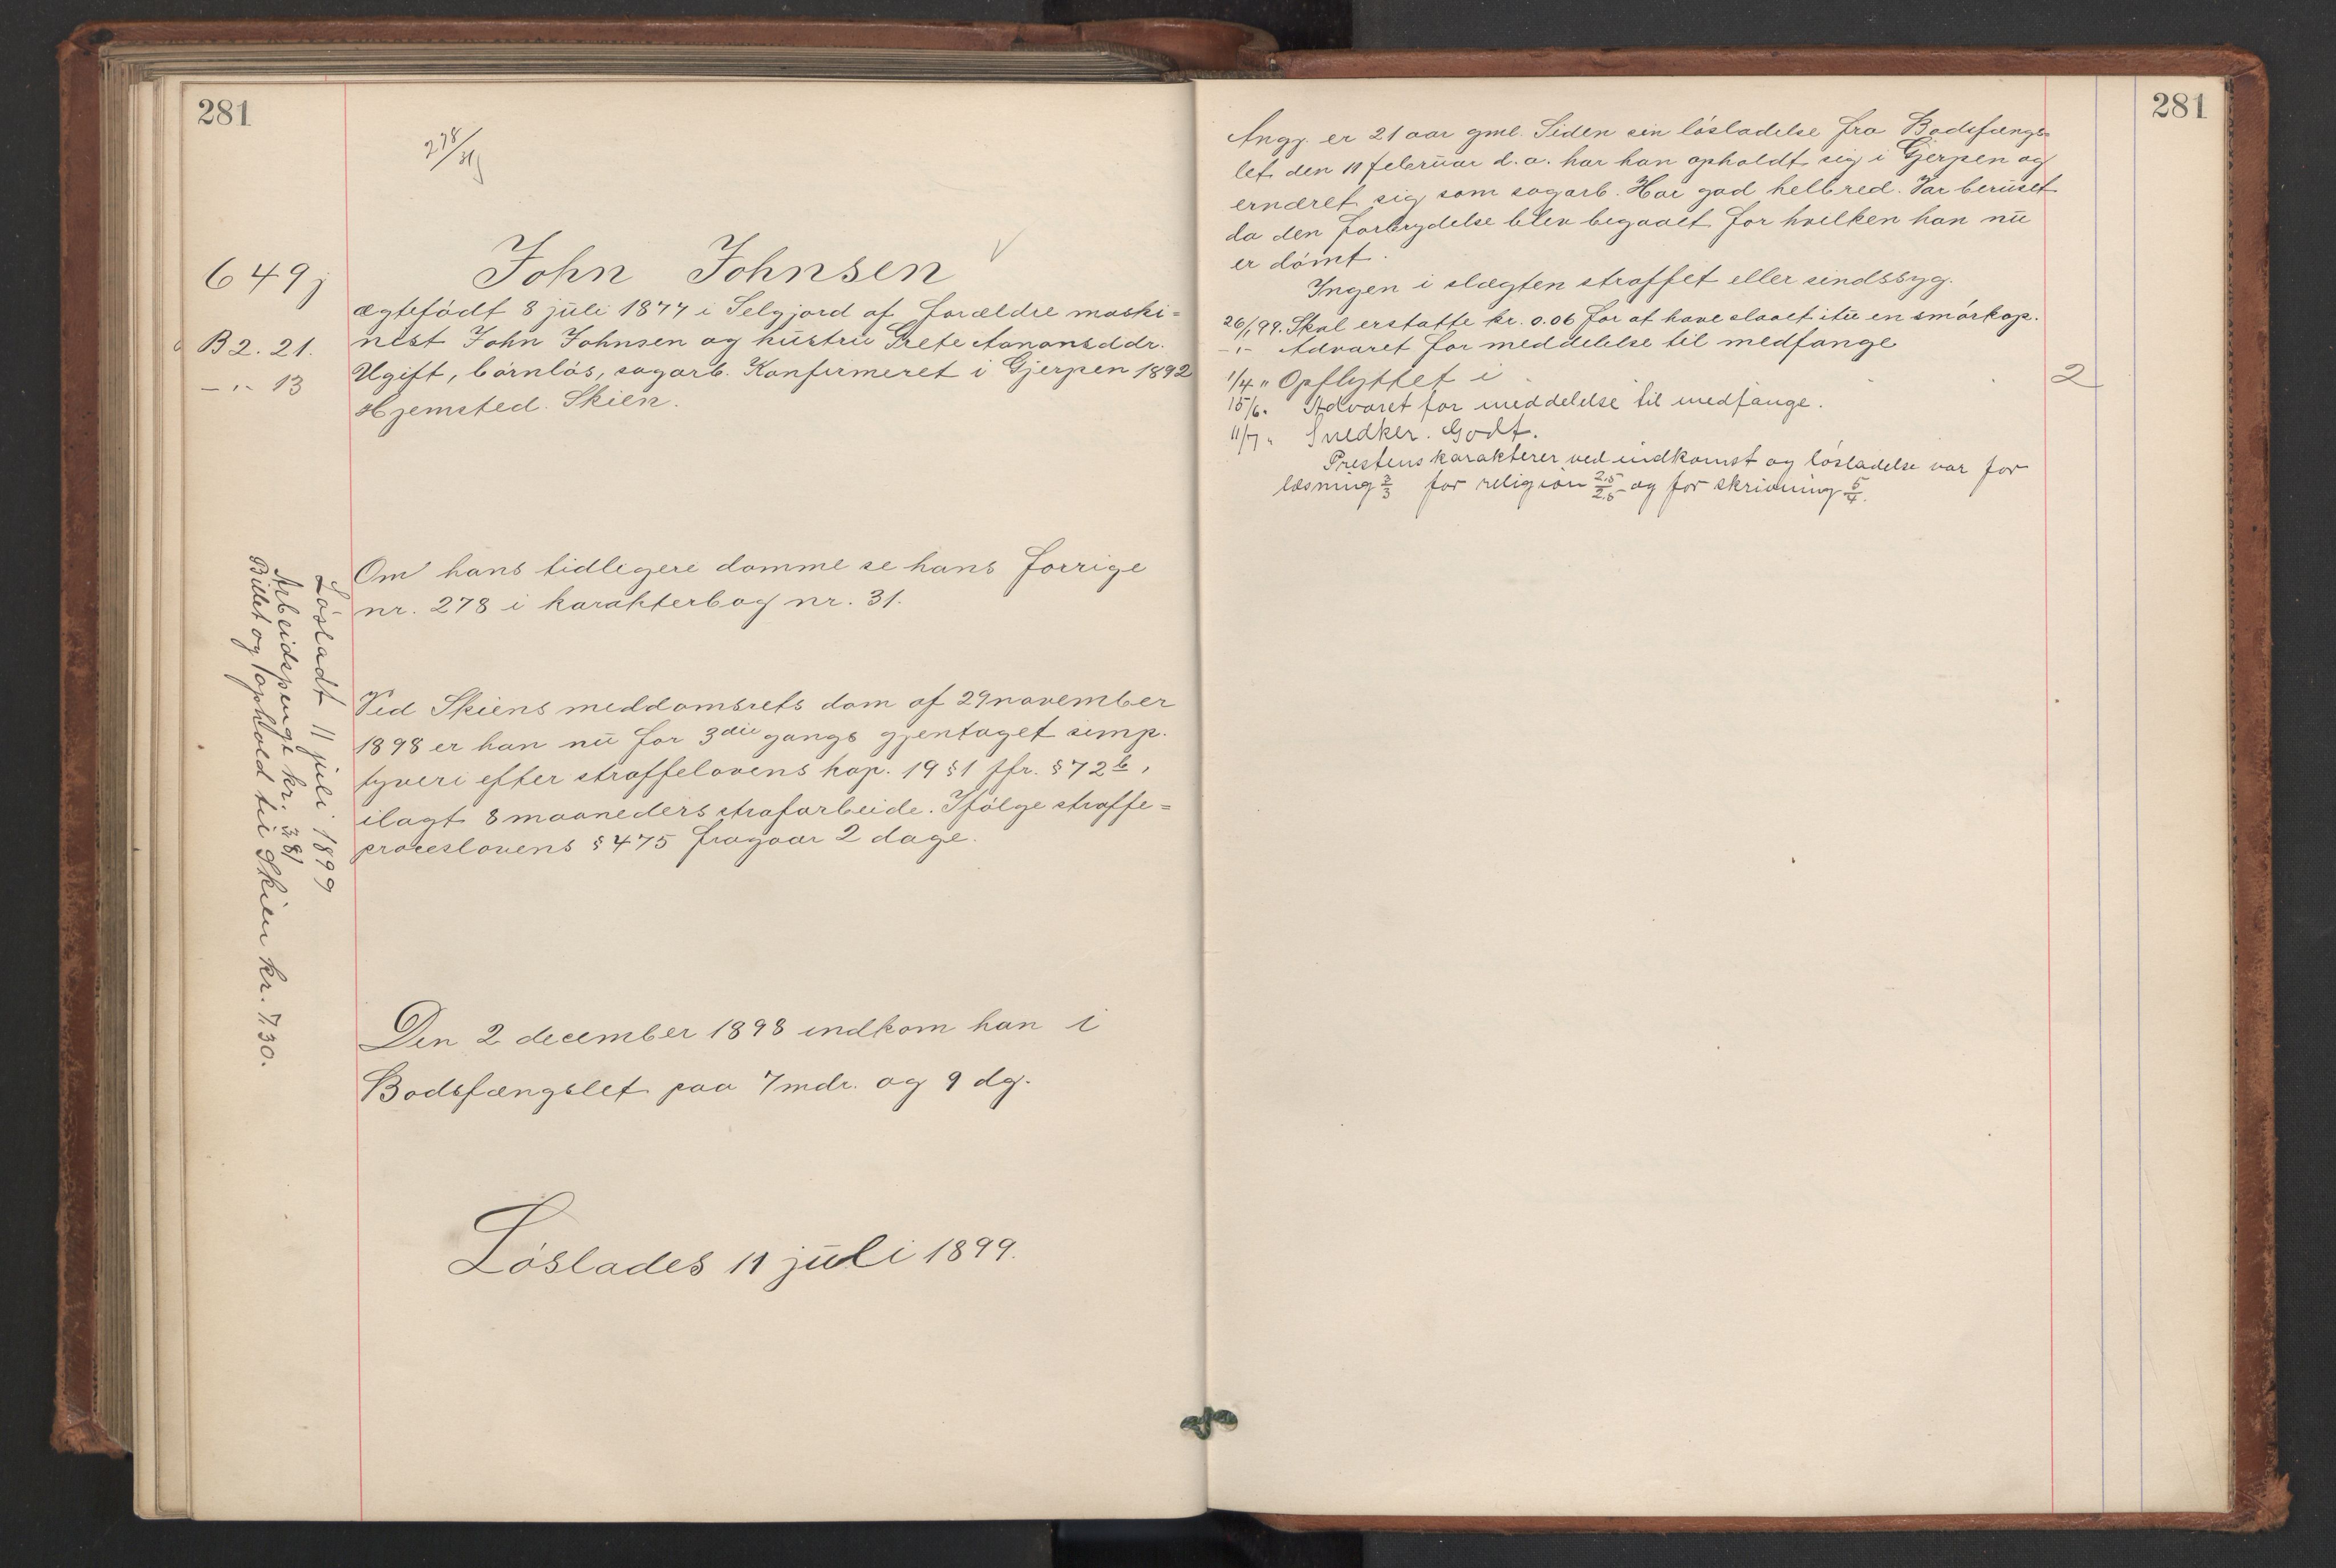 281
278/31
649 j
John Johnsen
ægtefödt 8 juli 1877 i Selgjord af forældre maski=
B 2. 21.
nist John Johnsen og hustru Grete Aanonsddr.
—„— 13
Ugift, börnlös, sagarb. Konfirmeret i Gjerpen 1892
Hjemsted. Skien.
Om hans tidligere domme se hans forrige
nr. 278 i karakterbog nr. 31.
Ved Skiens meddomsrets dom af 29 november
1898 er han nu for 3die gangs gjentaget simp.
tyveri efter straffelovens kap. 19 §1 jfr. §72 b,
ilagt 8 maaneders strafarbeide. Ifölge straffe=
proceslovens §475 fragaar 2 dage.
Den 2 december 1898 indkom han i
Bodsfængslet paa 7 mdr. og 9 dg.
Löslades 11 juli 1899.
Lösladt 11 juli 1899
Arbeidspenge kr. 3.81
Billet og ophold til Skien kr. 7,30.
281
Angj. er 21 aar gml. Siden sin lösladelse fra Bodsfængs=
let den 11 februar d.a. har han opholdt sig i Gjerpen og
ernæret sig som sagarb. Har god helbred. Var beruset
da den forbrydelse blev begaaet for hvilken han nu
er dömt.
Ingen i slægten straffet eller sindssyg.
26/1 99. Skal erstatte kr. 0.06 for at have slaaet itu en smörkop.
—„— Advaret for meddelelse til medfange
1/4 „ Opflyttet i 2
15/6 „ Advaret for meddelelse til medfange.
11/7 „ Snedker. Godt.
Prestens karakterer ved indkomst og lösladelse var for
læsning 3/3 for religion 2.5/2.5 og for skrivning 5/4.